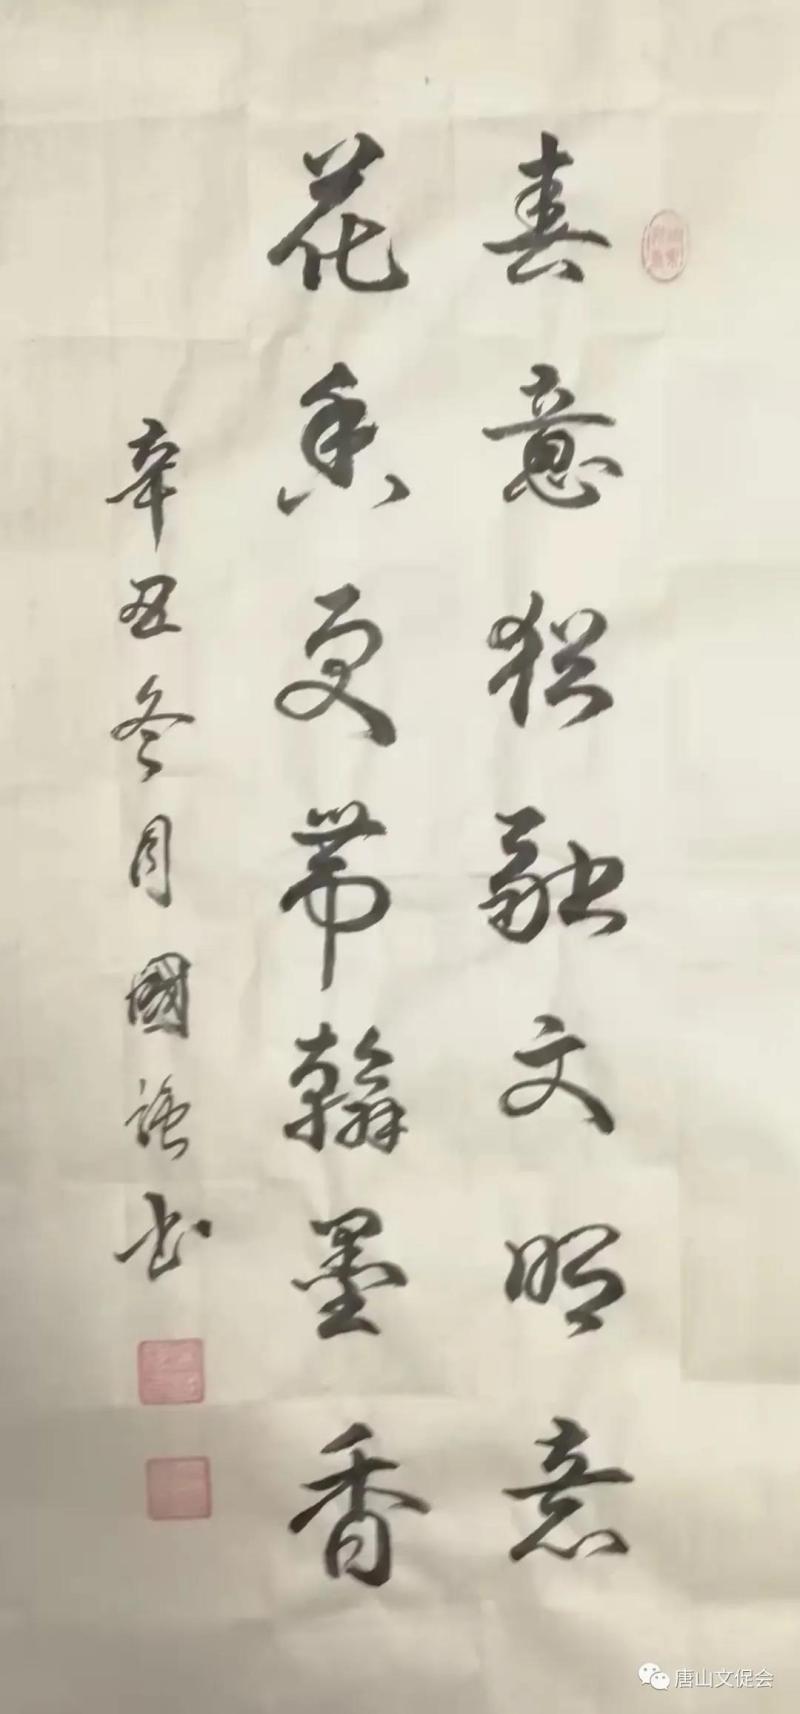 春意猶融文明意
花香更带翰墨香
辛丑冬月國强书
唐山文促会